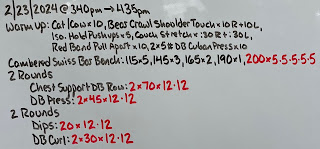 2/23/2024 @ 340pm → 435pm
Warm up: Cat/Cow x 10, Bear Crawl Shoulder Touch x 10R + 10L,
Iso. Hold Pushups x 5, Couch Stretch x :30R + :30L,
Red Band Pull Apart x 10, 2x5# DB Cuban Press x 10
Cambered Swiss Bar Bench: 115x5, 145x3, 165x2, 190x1, 200x5·5·5·5·5
2 Rounds
Chest Support DB Row: 2x70x12·12
DB Press: 2x45x12·12
2 Rounds
Dips: 20x12·12
DB Curl: 2x30x12·12